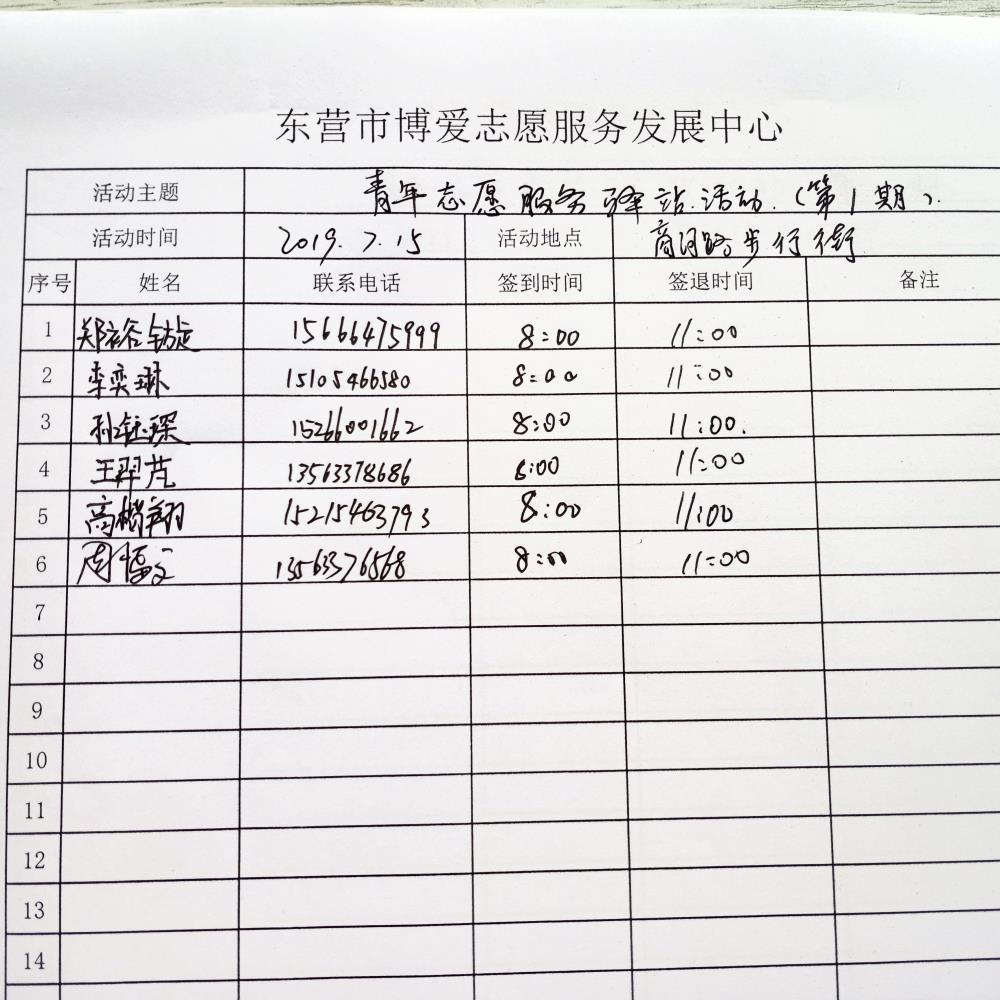 东营市博爱志愿服务发展中心
活动主题 青年志愿服务驿站活动.(第1期).
活动时间 2019.7.15 活动地点 商河路步行街
序号 姓名 联系电话 签到时间 签退时间 备注
1 15666475999 8:00 11:00
2 李奕琳 15105466580 8:00 11:00
3 孙钰琛 15266001662 8:00 11:00.
4 王羿芃 13563378686 8:00 11:00
5 高楷翔 15215463793 8:00 11:00
6 13563376568 8:00 11:00
7
8
9
10
11
12
13
14